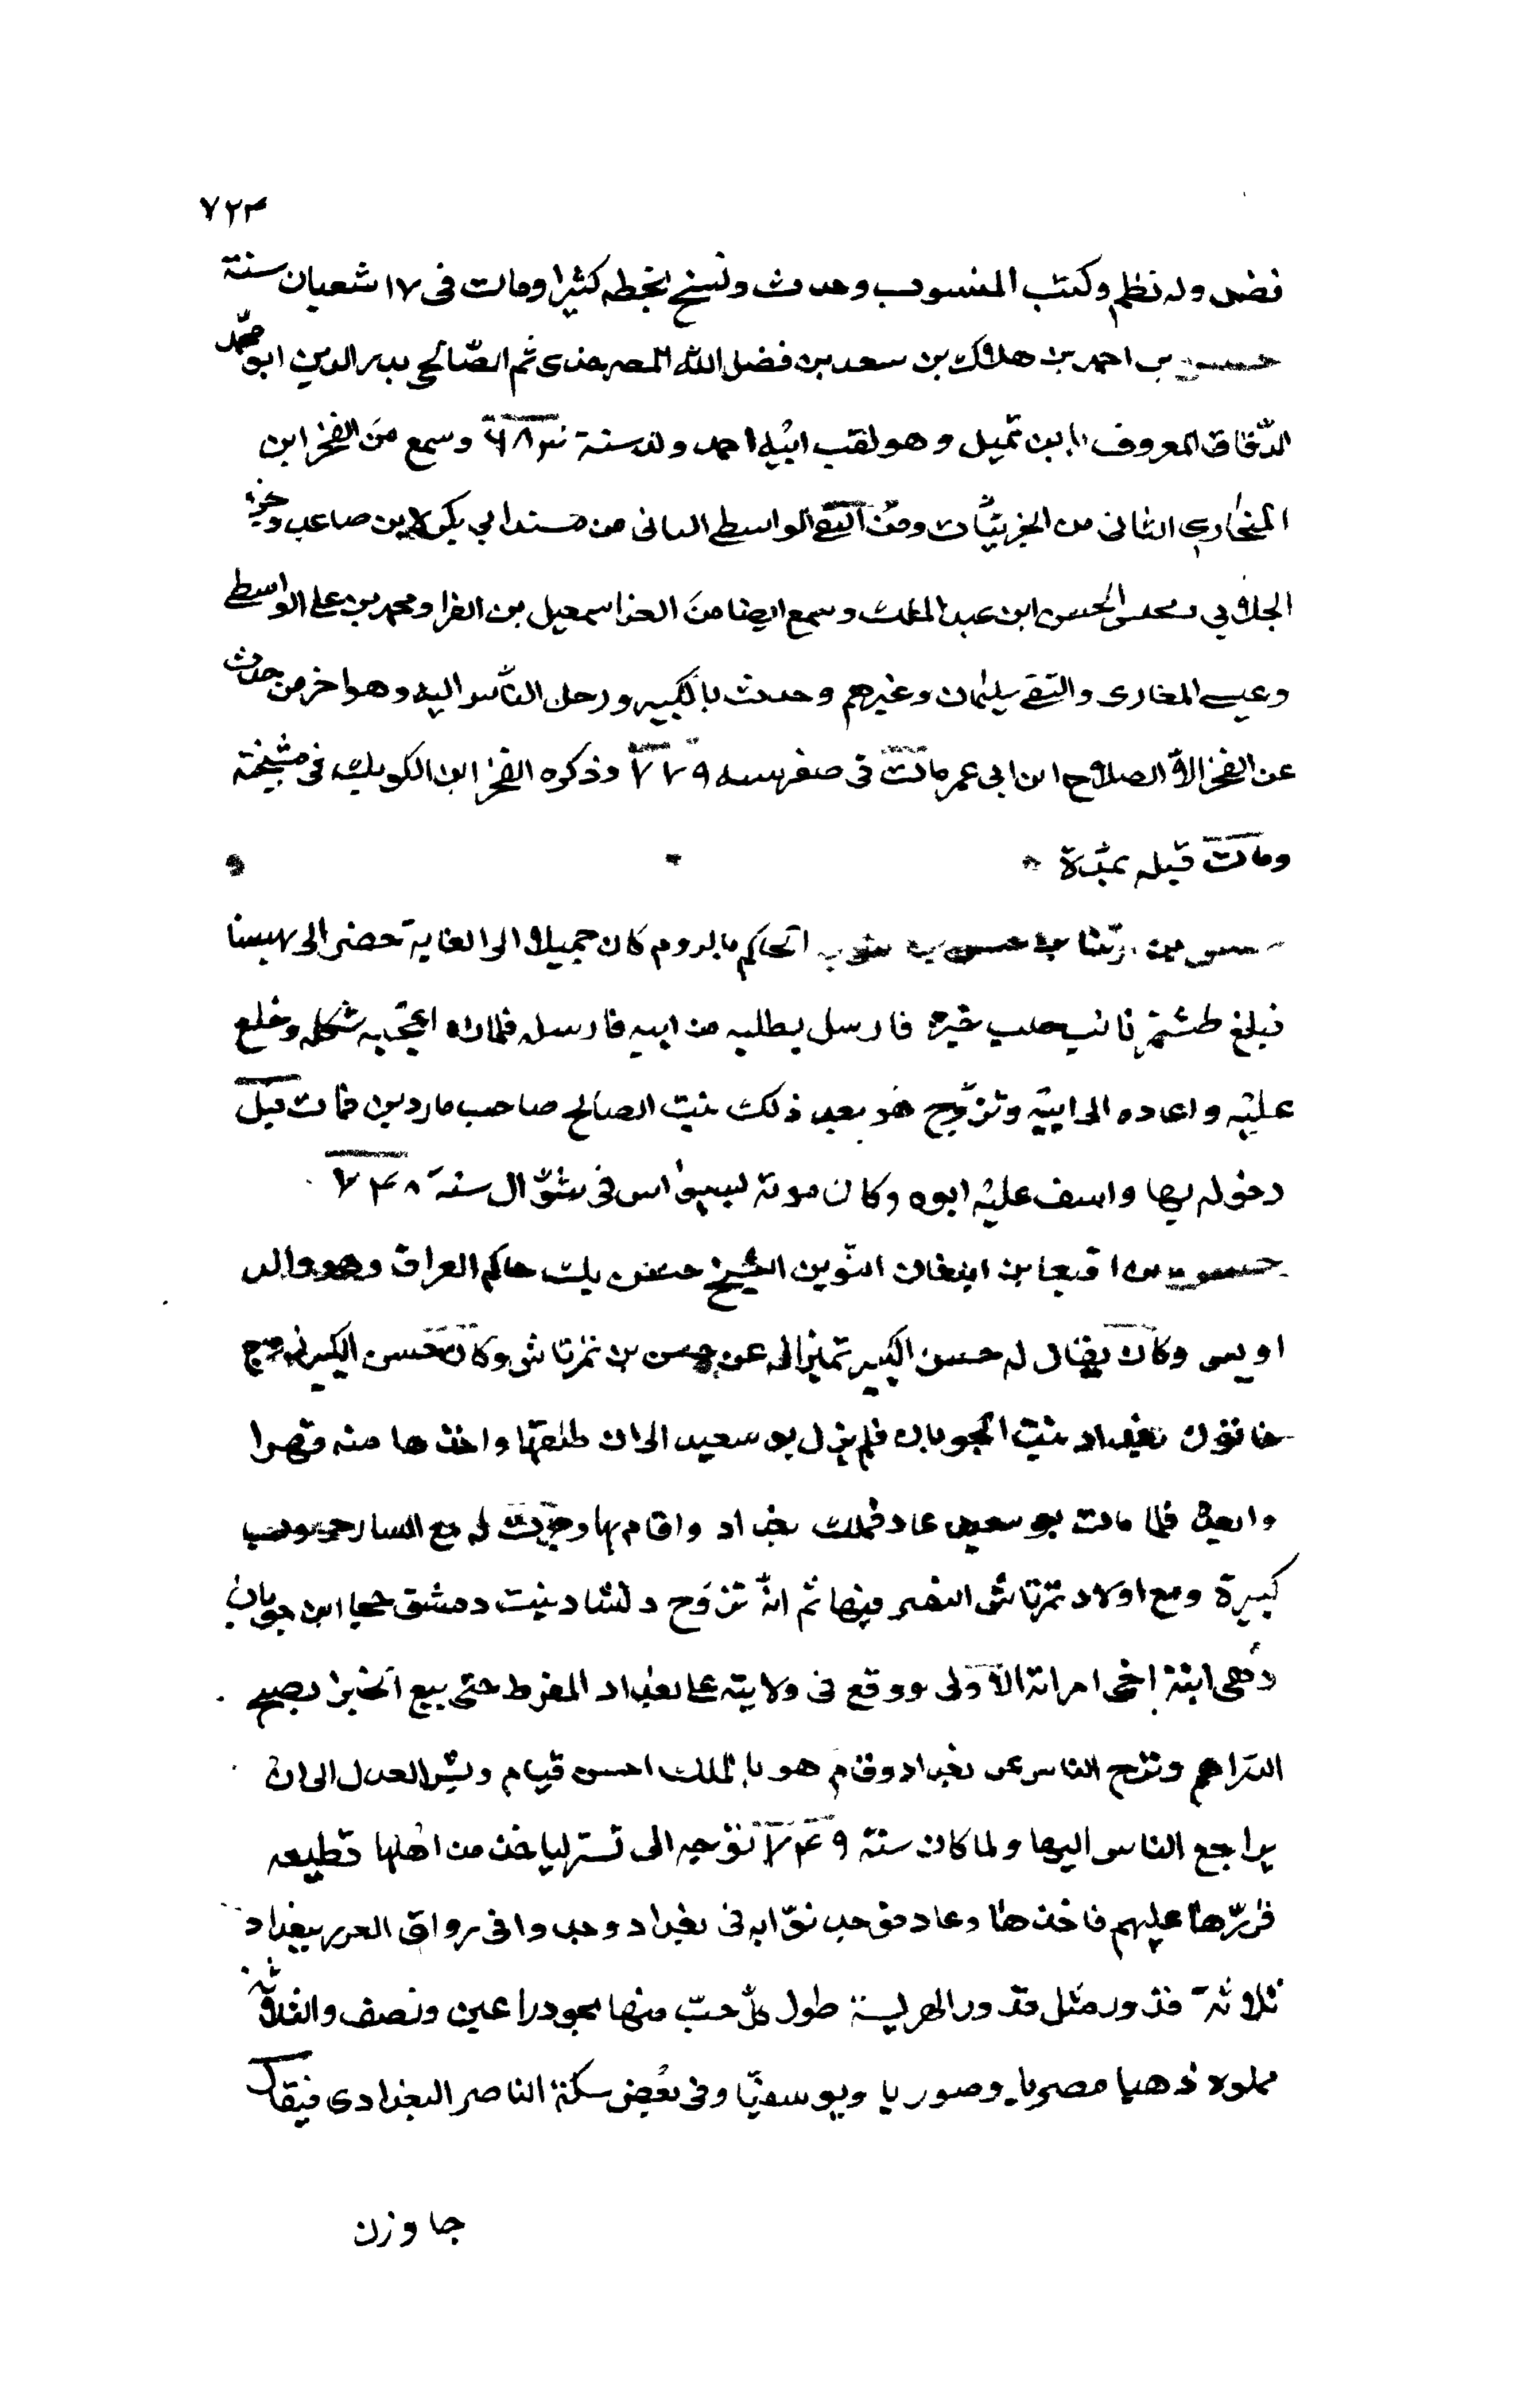 ٧٢٣
فضل وله نظم وكتب المنسوب وحدث ونسخ بخطه كثيرا ومات فى ١٧ شعبان سنة
حسن بن احمد بن هلال بن سعد بن فضل الله الصرخدى ثم الصّالحى بدر الدين ابو محمّد
الدّقاق المعروف بابن هبل وهو لقب ابيه احمد ولد سنة ٦٨٣ وسمع من الفخر ابن
البخارى الثانى من الحربيّات ومن التقى الواسطى الثانى من مسند ابي بكر لابن صاعد وجزء
الجلابي ... الحسن ابن عبد الملك وسمع ايضا من العز اسمعيل بن الفرا ومحمد بن على الواسطى
وعيسى المغارى والتقى سليمان وغيرهم وحدث بالكثير ورحل الناس اليه وهو اخر من حدث
عن الفخر الا الصلاح ابن ابى عمر مات فى صفر سنه ٧٧٩ وذكره الفخر ابن الكويك فى مشيخته
ومات قبله بمدّة
حسن بن ارتنا ... الحاكم بالروم كان جميلا الى الغاية حضر الى بهسنا
فبلغ طشتمر نائب حلب خبره فارسل يطلبه من ابيه فارسله فلما راه اعجبه شكله وخلع
عليه واعاده الى ابيه وتزوّج هو بعد ذلك بنت الصالح صاحب ماردين فمات قبل
دخوله بها واسف عليه ابوه وكان موته بسيواس فى شوّال سنة ٧٤٨
حسن بن اقبغا بن ايلغان النّوين الشيخ حسن بك حاكم العراق وهو والد
اويس وكان يقال له حسن الكبير تميزا له عن حسن بن تمرتاش وكان حسن الكبير تزوج
خاتون بغداد بنت الجوبان فلم يزل بو سعيد الى ان طلقها واخذها منه قهرا
وابعده فلما مات بو سعيد عاد فملك بغداد واقام بها وجرت له مع ... حروب
كبيرة ومع اولاد تمرتاش انتصر فيها ثم انّه تزوّج دلشاد بنت دمشق خجا ابن جوبان
وهى ابنة اخى امراته الاولى ووقع فى ولايته على بغداد المفرط حتى بيع الخبز بصنج
الدّراهم ونزح الناس عن بغداد وقام هو بالملك احسن قيام ونشر العدل الى ان
يراجع الناس اليها ولما كان سنة ٧٤٩ توجه الى تستر لياخذ من اهلها قطيعه
قرّرها عليهم فاخذها وعاد فوجد نوّابه فى بغداد وجدوا فى رواق العزر ببغداد
ثلاثة قدور مثل قدور الهريسة طول كلّ حبّ منها نحو ذراعين ونصف والثلاثة
مملوة ذهبا مصريا وصوريا ويوسفيّا وفى بعض سكة الناصر البغدادى فيقال
جاوزن